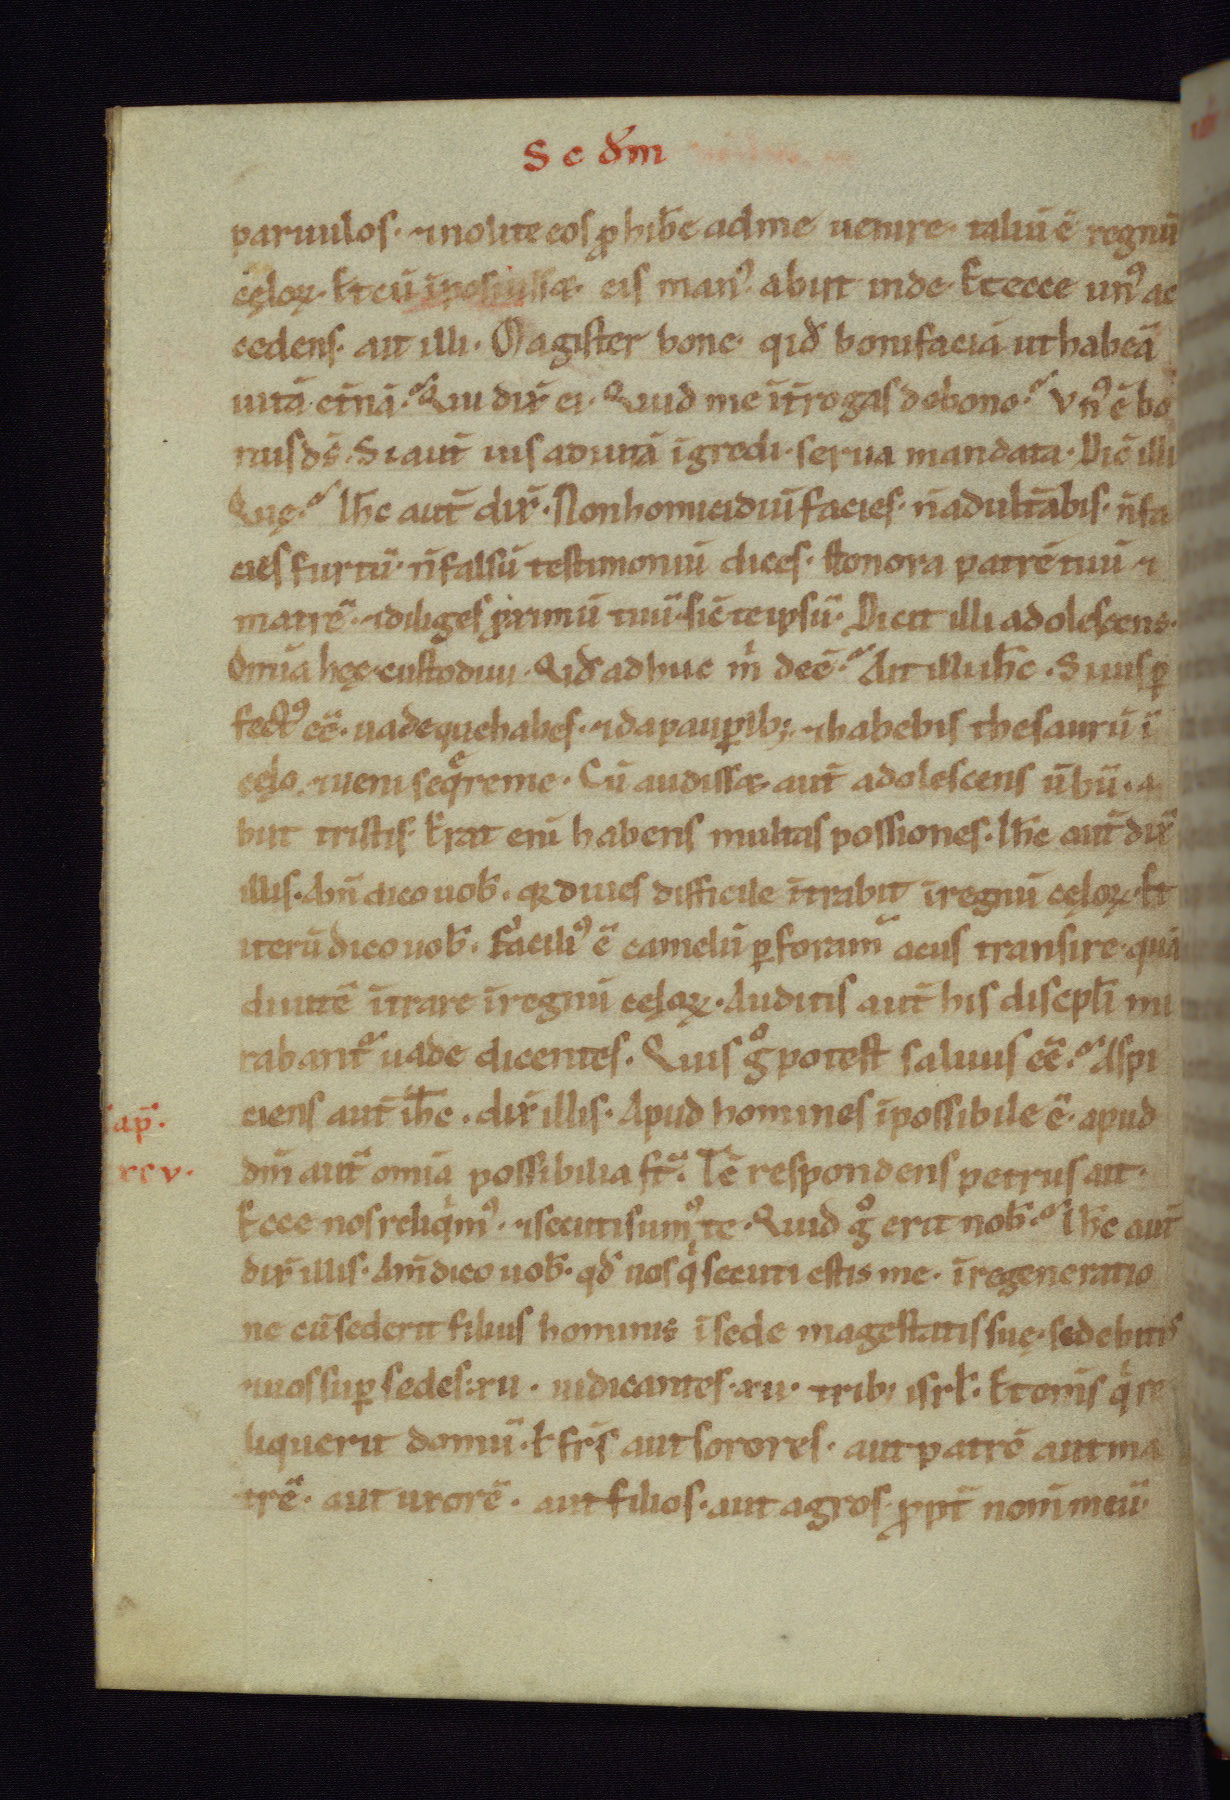 Scdm
paruulos· ⁊ nolite eos ꝓhibe͛ ad me uenire· taliu͂ e͂ regnu͂
cęloꝝ· Et cu͂ i͂posuisset eis man᷒ abiit inde· Et ecce un᷒ ac
cedens· ait illi· Magister bone· qid boni facia͂ ut habea͂
uita͂ et͂na͂· Qui dix͛ ei· Quid me i͂t͛rogas de bono· Vn᷒ e͂ bo
nus d͂s· Si aut͂ uis ad uita͂ i͂gredi· serua mandata· Dic͂ illi
Quę· Ih͂c aut͂ dix͛· Non homicidiu͂ facies· n͂ adult͂abis· n͂ fa
cies furtu͂· n͂ falsu͂ testimoniu͂ dices· Honora patre͂ tuu͂ ⁊
matre͂· ⁊ diliges ꝓximu͂ tuu͂· sic͂ te ipsu͂· Dicit illi adolescens·
Omi͂a hęc custodiui· Qid adhuc m͛ dee͂· Ait illi ih͂c· Si uis ꝑ
fect᷒ ee͂· uade que habes· ⁊ da pauꝑib;· ⁊ habebis thesauru͂ i͂
cęlo· ⁊ ueni seqͤre me· Cu͂ audisset aut͂ adolescens u͂bu͂· a
biit tristis· Erat eni͂ habens multas possiones· Ih͂c aut͂ dix͛
illis· Am͂ dico uob͛· qꝛ diues difficile i͂trabit i͂ regnu͂ cęloꝝ· Et
iteru͂ dico uob͛· Facili᷒ e͂ camelu͂ ꝑ foram͂ acus transire· qua͂
diuite͂ i͂trare i͂ regnu͂ cęloꝝ· Auditis aut͂ his discipl͛i mi
rabant͛ uade dicentes· Quis gͦ potest saluus ee͂· Aspi
ciens aut͂ ih͂c· dix͛ illis· Apud homines i͂possibile e͂· apud
dm͂ aut͂ omi͂a possibilia st͂· Tc͂ respondens petrus ait·
ap͂·
xcv·
Ecce nos reliqim᷒· ⁊ secuti sum᷒ te· Quid gͦ erit nob͛· Ih͂c aut͂
dix͛ illis· Am͂ dico uob͛· qd uos qi secuti estis me· i͂ regeneratio
ne cu͂ sederit filius hominis i͂ sede magestatis suę· sedebitis
⁊ uos suꝑ sedes xii· iudicantes· xii· trib; isrl͛· Et omi͂s qi re
liquerit domu͂· ł fr͂s aut sorores· aut patre͂ aut ma
tre͂· aut uxore͂· aut filios· aut agros· ꝓpt͂ nom͂ meu͂·